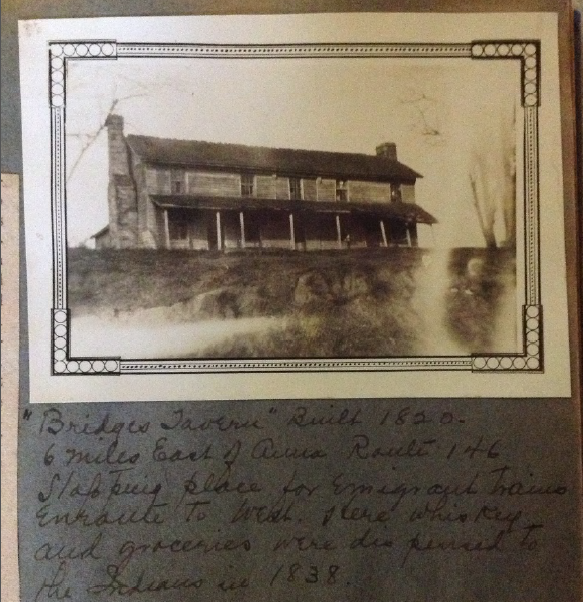 "Bridges Tavern" Built 1820-
6 miles East of Anna Route 146
Stopping place for Emigrant trains
Enroute to West. Here whiskey
and groceries were dispensed to
the Indians in 1838.